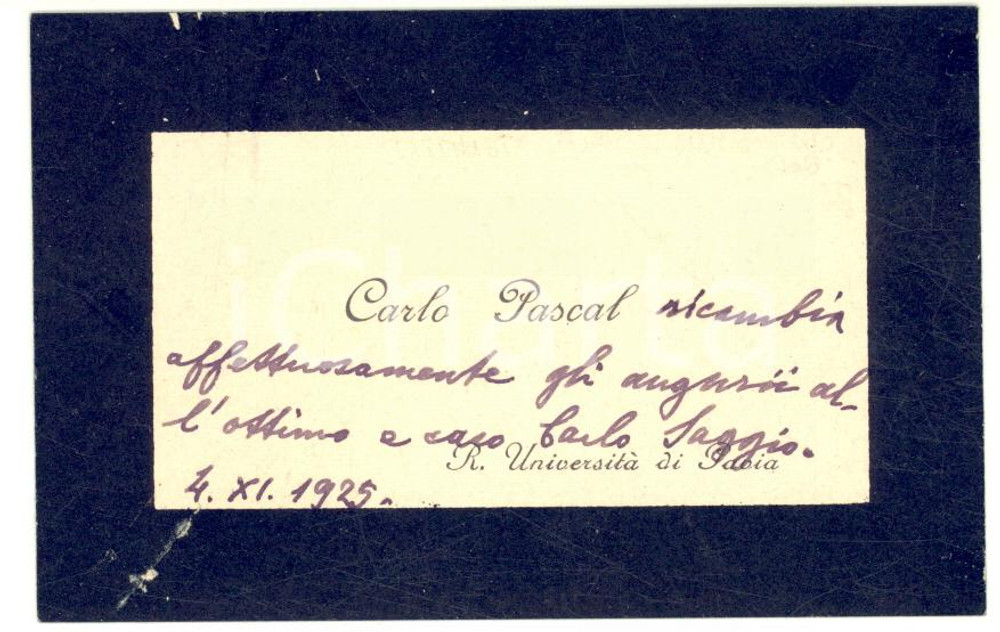 Carlo Pascal ricambia
affettuosamente gli augurii al-
l'ottimo e caro Carlo Saggio.
R. Università di Pavia
4. XI. 1925.
iCharta